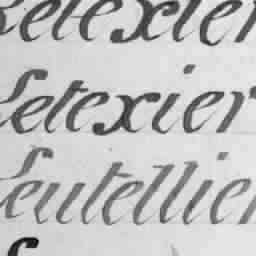 Letexier
Letexier
Leutellier